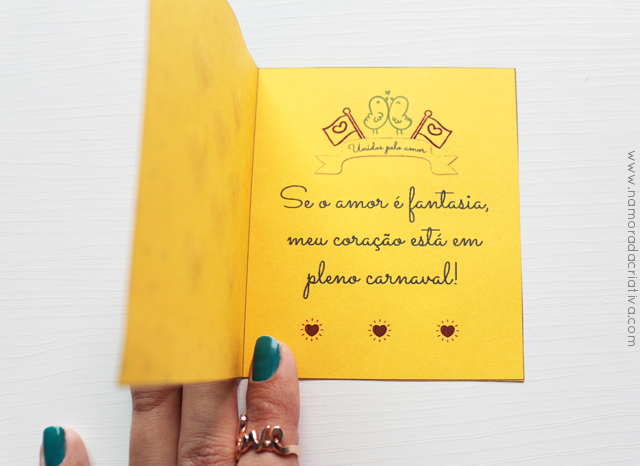 Unidos pelo amor!
Se o amor é fantasia,
meu coração está em
pleno carnaval!
love
www.namoradacriativa.com